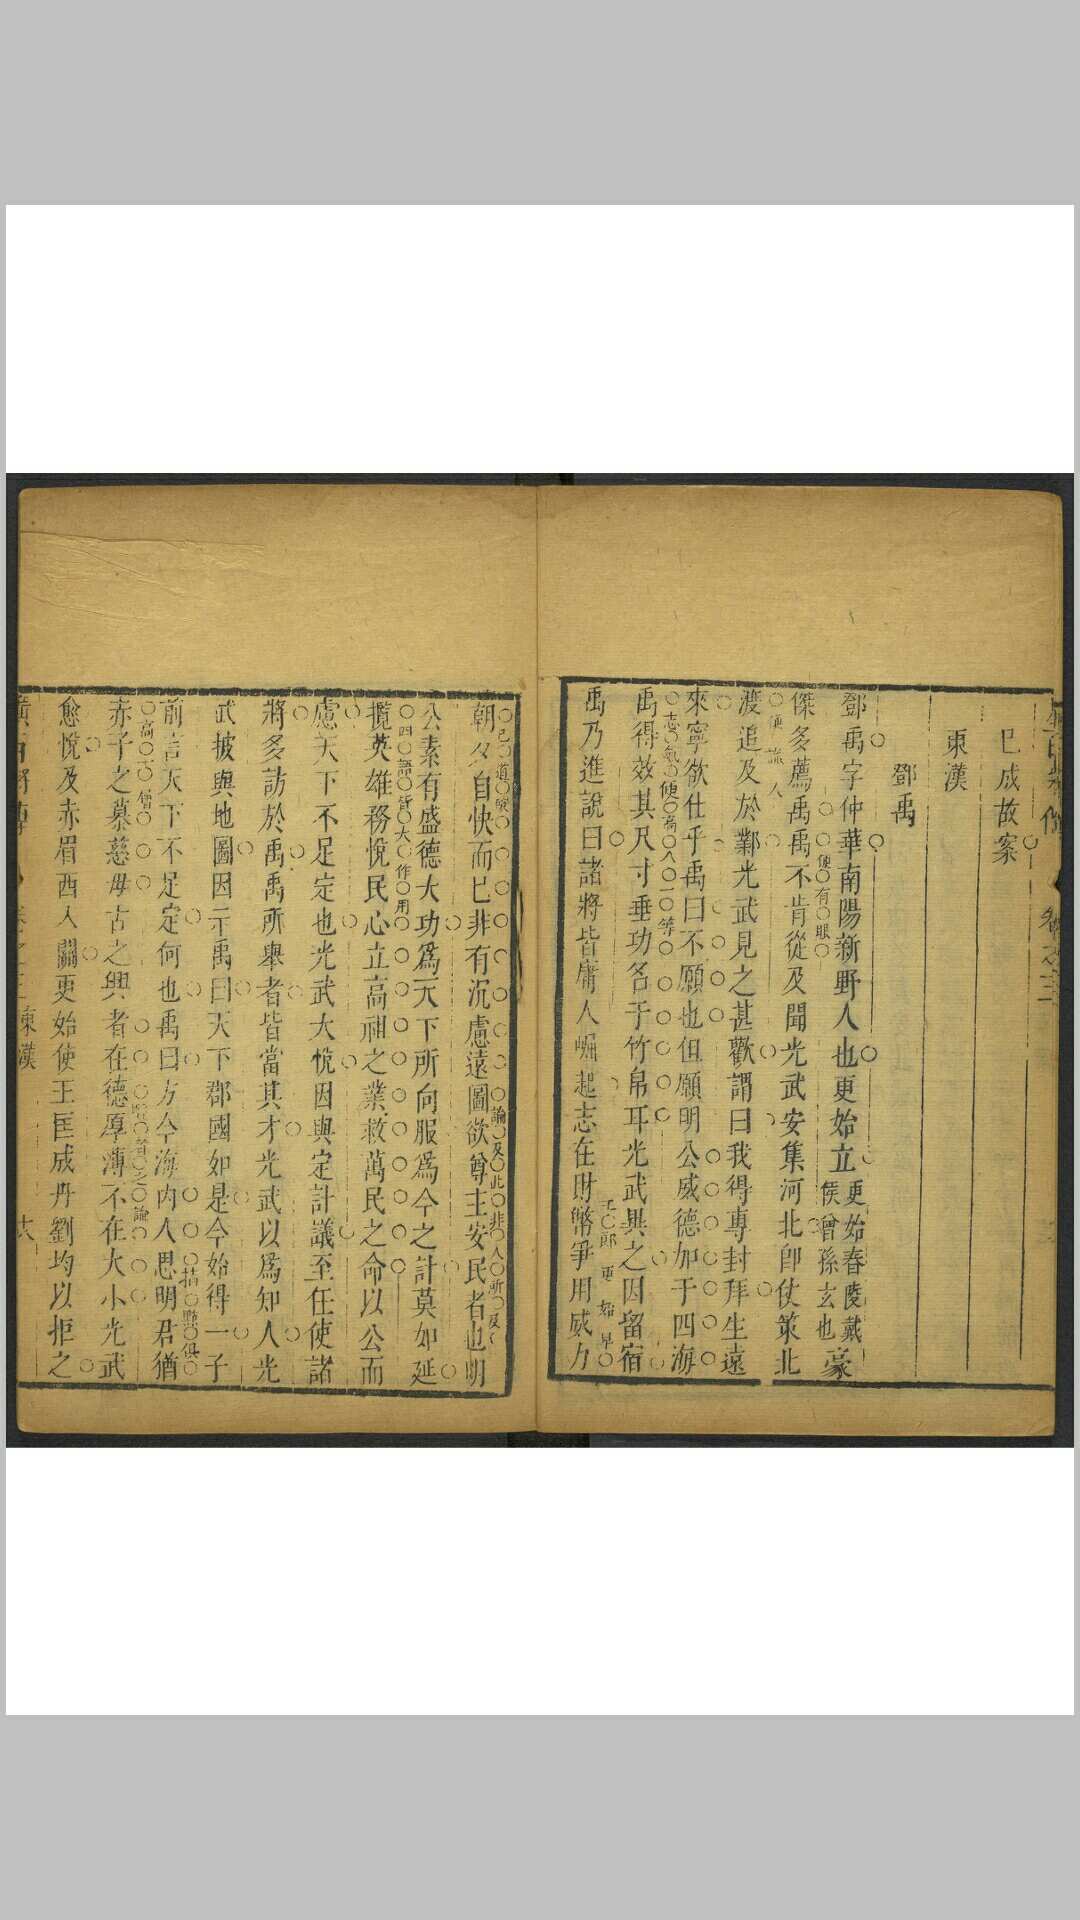 已成故案
東漢
鄧禹
鄧禹字仲華南陽新野人也更始立更始春陵戴侯曾孫玄也豪
便有眼
傑多薦禹禹不肯從及聞光武安集河北卽仗策北
便識人
渡追及於鄴光武見之甚歡謂曰我得專封拜生遠
來寧欲仕乎禹曰不願也但願明公威德加于四海
志氣便高人一等
禹得效其尺寸垂功名于竹帛耳光武與之因留宿
王郎更始早
禹乃進說曰諸將皆庸人崛起志在財幣爭用威力
已道破
論及此非人所及
朝夕自快而已非有沉慮遠圖欲尊主安民者也明
公素有盛德大功爲天下所向服爲今之計莫如延
四語皆大作用
攬英雄務悅民心立高祖之業救萬民之命以公而
慮天下不足定也光武大悅因與定計議至任使諸
將多訪於禹禹所舉者皆當其才光武以爲知人光
武披輿地圖因示禹曰天下郡國如是今始得一子
前言天下不足定何也禹曰方今海内人思明君猶
赤子之慕慈母古之興者在德厚薄不在大小光武
愈悅及赤眉西入關更始使王匡成丹劉均以拒之
東漢